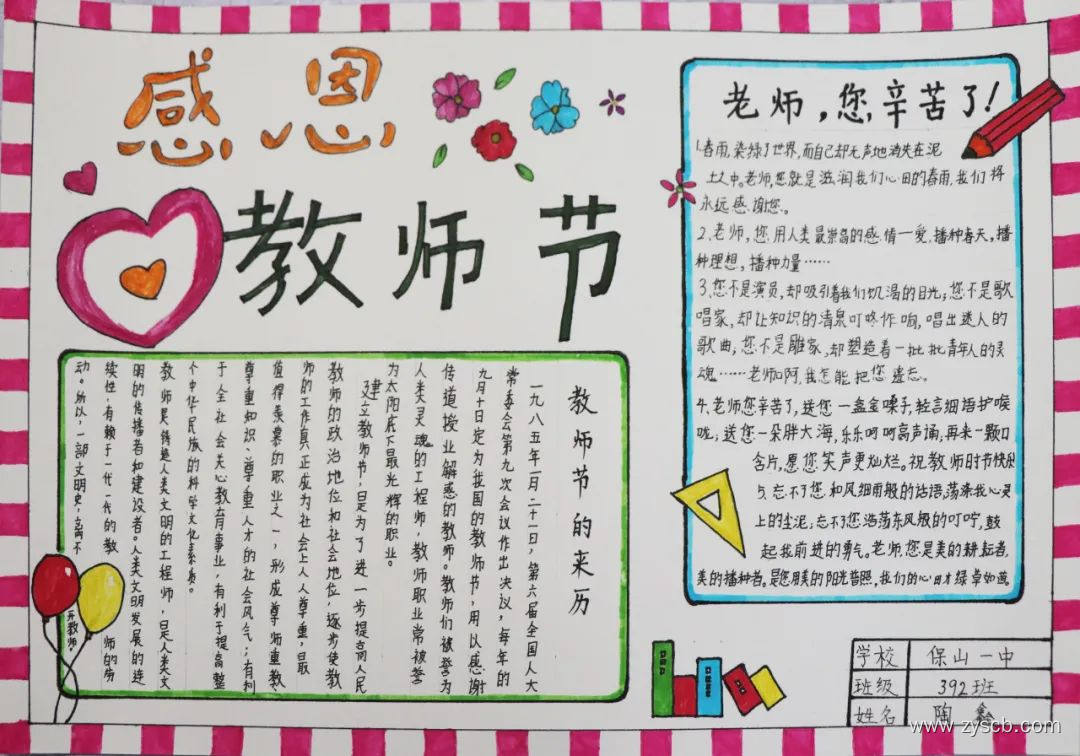 感恩
教师节
教师节的来历
一九八五年一月二十一日，第六届全国人大
常委会第九次会议作出决议，每年的
九月十日定为我国的教师节，用以感谢
传道授业解惑的教师。教师们被誉为
人类灵魂的工程师，教师职业常被誉
为太阳底下最光辉的职业。
建立教师节，是为了进一步提高人民
教师的政治地位和社会地位，逐步使教
师的工作真正成为社会上人人尊重，最
值得羡慕的职业之一，形成尊师重教，
尊重知识、尊重人才的社会风气；有利
于全社会关心教育事业，有利于提高整
个中华民族的科学文化素养。
教师是铸造人类文明的工程师，是人类文
明的传播者和建设者。人类文明发展的连
续性，有赖于一代一代的教师的劳
动。所以，一部文明史，离不
开教师。
老师，您辛苦了！
1.春雨，染绿了世界，而自己却无声地消失在泥
土之中。老师，您就是滋润我们心田的春雨，我们将
永远感谢您。
2.老师，您用人类最崇高的感情一爱，播种春天，播
种理想，播种力量……
3.您不是演员，却吸引着我们饥渴的目光；您不是歌
唱家，却让知识的清泉叮咚作响，唱出迷人的
歌曲；您不是雕家，却塑造着一批批青年人的灵
魂……老师啊，我怎能把您遗忘。
4.老师您辛苦了，送您一盒金嗓子，轻言细语护喉
咙；送您一朵胖大海，乐乐呵呵高声诵，再来一颗口
含片，愿您笑声更灿烂。祝教师时节快乐
5.忘不了您和风细雨般的话语，荡涤我心灵
上的尘泥；忘不了您浩荡东风般的叮咛，鼓
起我前进的勇气。老师，您是美的耕耘者，
美的播种者。是您用美的阳光普照，我们的心田才绿草如茵
学校 保山一中
班级 392班
姓名 陶鑫
www.zyscb.com